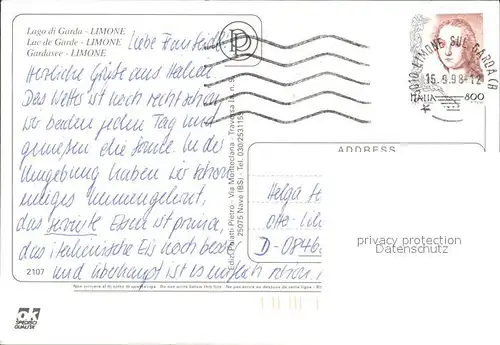 Lago di Garda - LIMONE
Lac de Garde - LIMONE
Gardasee - LIMONE
Liebe Frau Seidel!
Herzliche Grüße aus Italien.
Das Wetter ist noch recht schön
wir baden jeden Tag und
genießen die Sonne. In der
Umgebung haben wir schon
einiges
das servierte Essen ist prima,
das italienische Eis noch besser
und überhaupt ist es einfach schön
2107
LIMONE SUL GARDA (
15.9.98-12
ITALIA 800
Ediz. Polatti Pietro - Via Monteclana - Traversa I
25075 Nave (BS) - Tel. 030/253115
ADDRESS
Helga
Otto-
D-0846
privacy protection
Datenschutz
Non scrivere al di sotto della riga - Do not write below this line - Ne pas écrire au dessous de cette ligne -
ak
SPEDIFICI
QUALITÄT